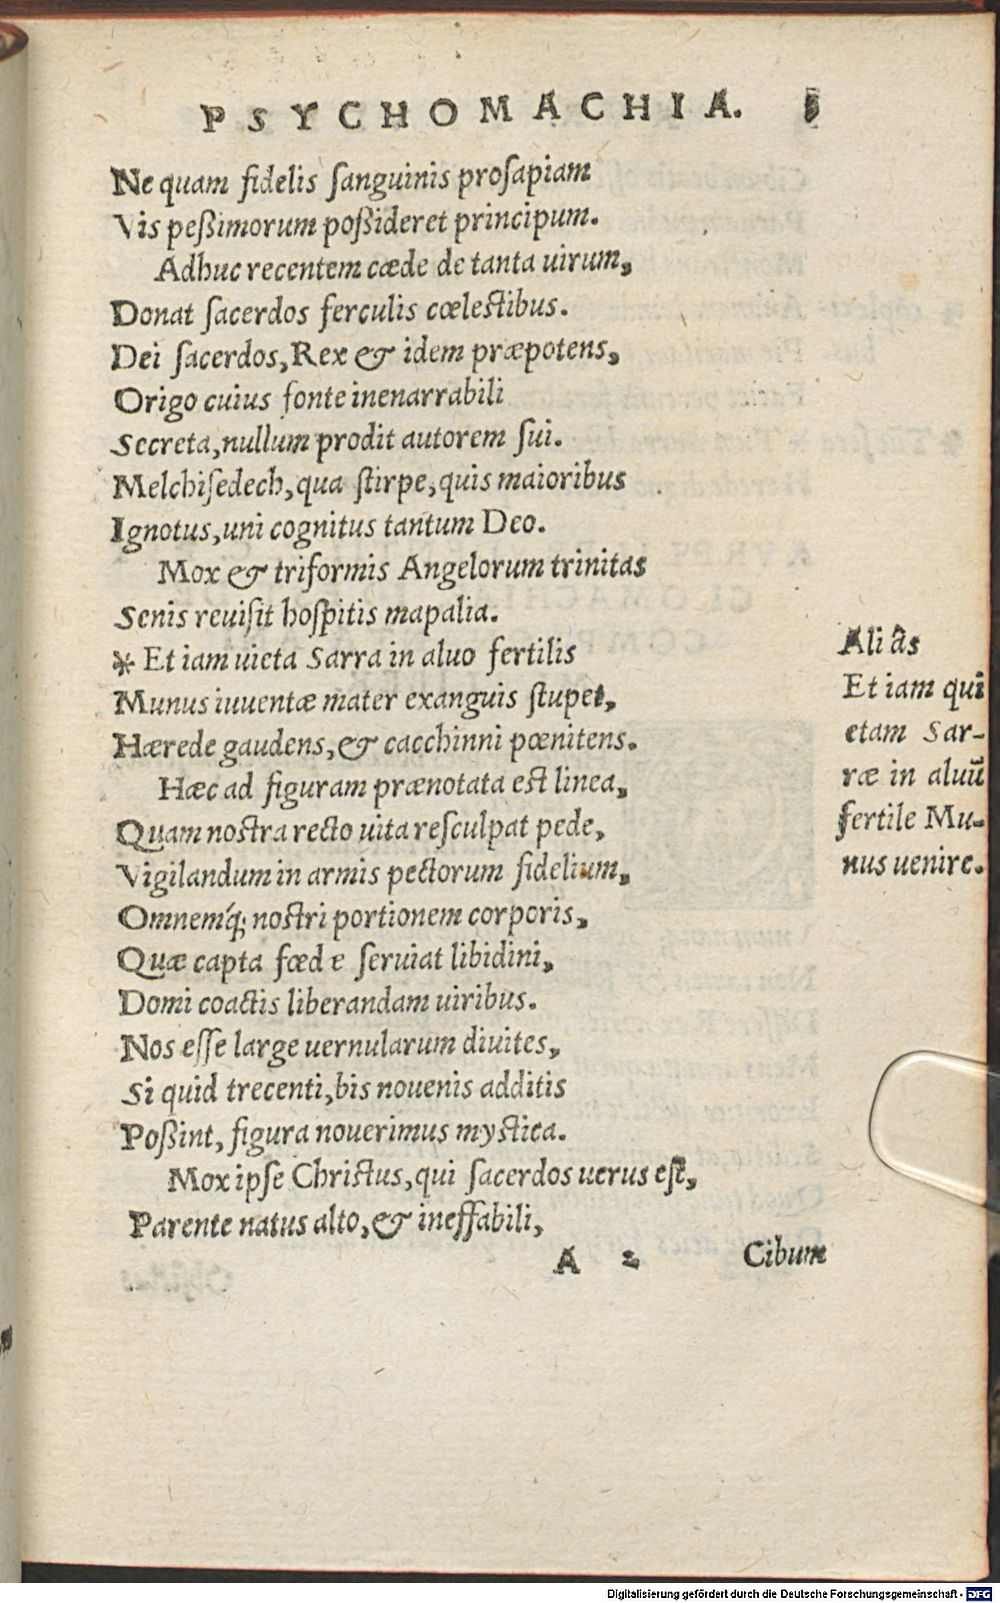 PSYCHOMACHIA.
Ne quam fidelis ſanguinis proſapiam
Vis peßimorum poßideret principum.
Adhuc recentem cæde de tanta uirum,
Donat ſacerdos ferculis cœleſtibus.
Dei ſacerdos, Rex & idem præpotens,
Origo cuius fonte inenarrabili
Secreta, nullum prodit autorem ſui.
Melchiſedech, qua ſtirpe, quis maioribus
Ignotus, uni cognitus tantum Deo.
Mox & triformis Angelorum trinitas
Senis reuiſit hoſpitis mapalia.
* Et iam uieta Sarra in aluo fertilis
Munus iuuentæ mater exanguis ſtupet,
Hærede gaudens, & cacchinni pœnitens.
Hæc ad figuram prænotata eſt linea,
Quam noſtra recto uita reſculpat pede,
Vigilandum in armis pectorum fidelium,
Omnemq́; noſtri portionem corporis,
Quæ capta fœde ſeruiat libidini,
Domi coactis liberandam uiribus.
Nos eſſe large uernularum diuites,
Si quid trecenti, bis nouenis additis
Poßint, figura nouerimus myſtica.
Mox ipſe Chriſtus, qui ſacerdos uerus eſt,
Parente natus alto, & ineffabili,
A 2 Cibum
Aliâs
Et iam qui
etam Sar-
ræ in aluū
fertile Mu-
nus uenire.
Digitalisierung gefördert durch die Deutsche Forschungsgemeinschaft - DFG